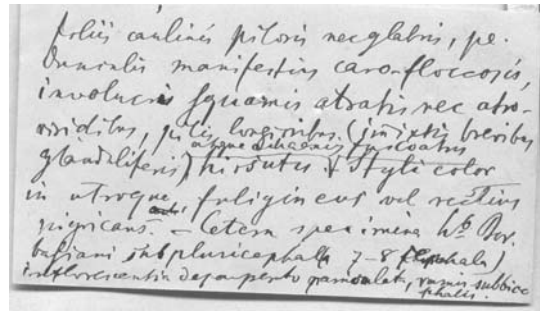 foliis caulinis pilosis nec glabris, pe-
dunculis manifestius cano-floccosis,
involucris squamis atratis nec atro-
viridibus, pilis longioribus (immixtis brevibus
glanduliferis) atque achaeniis fuscoatris
hirsutis. Styli color
in utroque fuligineus vel rectius
nigricans. — Cetera specimina hb Bor-
basiani subpluricephala 7-8 cephala)
inflorescentia depauperato ramulata, ramis subbice
phalis.